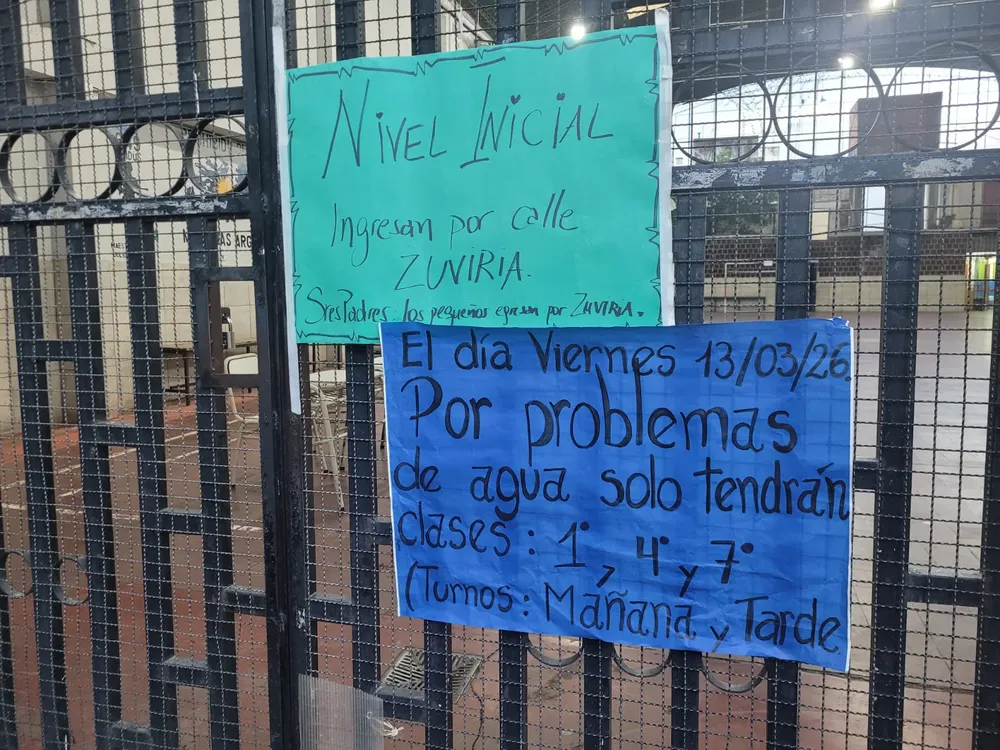 NIVEL INICIAL
Ingresan por calle
ZUVIRIA.
Sres Padres: los pequeños egresan por ZUVIRIA.
El día Viernes 13/03/26.
Por problemas
de agua solo tendrán
clases: 1°, 4° y 7°
(Turnos: Mañana y Tarde